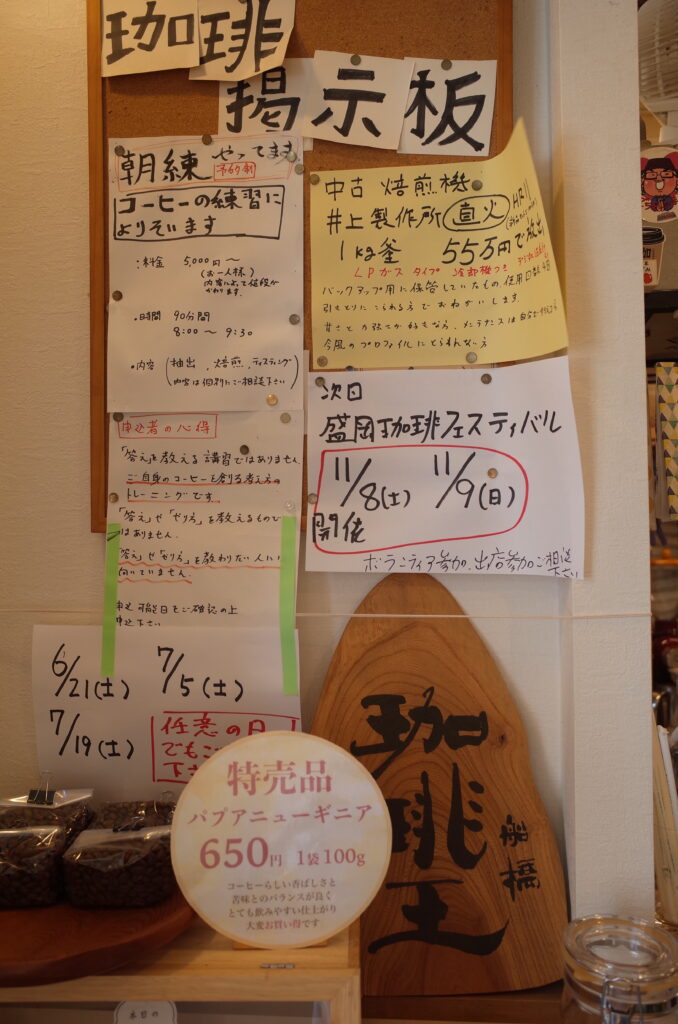 珈琲
掲示板
朝練 やってます
予約制
コーヒーの練習に
よりそいます
・料金 5,000円〜
(お一人様)
内容によって値段が
かわります
・時間 90分間
8:00 〜 9:30
・内容 (抽出、焙煎、ティスティング
内容は個別にご相談下さい)
申込者の心得
「答え」を教える講習ではありません
ご自身のコーヒーを創る考え方の
トレーニングです
「答え」や「やり方」を教えるもので
はありません。
「答え」や「やり方」を教わりたい人には
向いていません。
申込 可能日をご確認の上
申込下さい
6/21(土) 7/5(土)
7/19(土)
任意の日
でもご
下さ
中古 焙煎機
井上製作所 直火
1kg釜 55万円で放出
LPガスタイプ 冷却機つき
バックアップ用に保管していたもの、使用
引きとりにこられる方でおねがいします。
甘さとの強さが好きなら、メンテナンスは自分で
今風のプロファイルにとらわれない方
次回
盛岡珈琲フェスティバル
11/8(土) 11/9(日)
開催
ボランティア参加、出店参加ご相談
下さい
珈琲王
船橋
特売品
パプアニューギニア
650円 1袋100g
コーヒーらしい香ばしさと
苦味とのバランスが良く
とても飲みやすい仕上がり
大変お買い得です
本日の